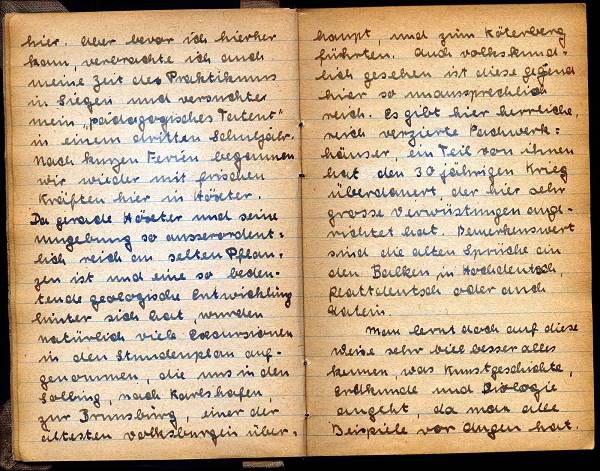 hier. Aber bevor ich hierher
kam, verbrachte ich auch
meine Zeit des Praktikums
in Siegen und versuchte
mein "pädagogisches Talent"
in einem dritten Schuljahr.
Nach kurzen Ferien begannen
wir wieder mit frischen
Kräften hier in Höxter.
Da gerade Höxter und seine
Umgebung so ausserordent=
lich reich an selten Pflan=
zen ist und eine so bedeu=
tende geologische Entwicklung
hinter sich hat, wurden
natürlich viele Excursionen
in den Stundenplan auf=
genommen, die uns in den
Solling, nach Karlshafen,
zur Brunsburg, einer der
ältesten Volksburgen über=
haupt, und zum Köterberg
führten. Auch volkskund=
lich gesehen ist diese Gegend
hier so unaussprechlich
reich. Es gibt hier herrliche,
reich verzierte Fachwerk=
häuser, ein Teil von ihnen
hat den 30 jährigen Krieg
überdauert, der hier sehr
grosse Verwüstungen ange=
richtet hat. Bemerkenswert
sind die alten Sprüche an
den Balken, in Hochdeutsch,
Plattdeutsch oder auch
Latein.
Man lernt doch auf diese
Weise sehr viel besser alles
kennen, was Kunstgeschichte,
Erdkunde und Biologie
angeht, da man alle
Beispiele vor Augen hat.